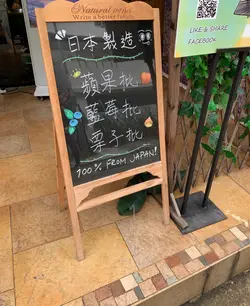 Natural wind
Write a better future
日本製造
蘋果批
藍莓批
栗子批
100% FROM JAPAN!
LIKE & SHARE
FACEBOOK